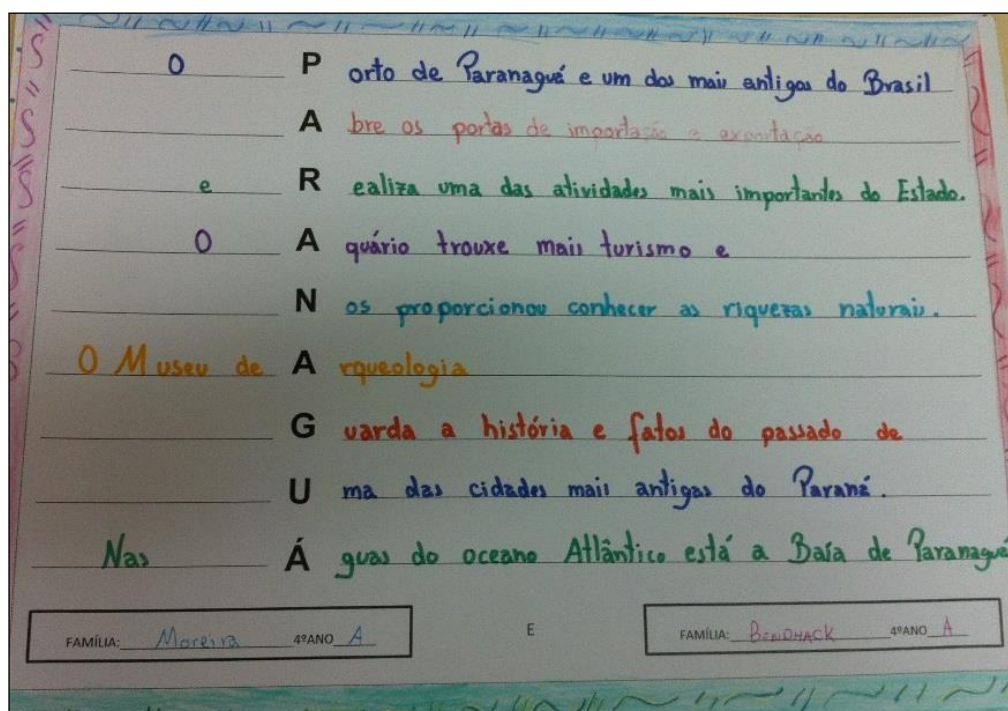 O Porto de Paranaguá e um dos mais antigos do Brasil
Abre os portas de importação e exportação
e Realiza uma das atividades mais importantes do Estado.
O Aquário trouxe mais turismo e
Nos proporcionou conhecer as riquezas naturais.
O Museu de Arqueologia
Guarda a história e fatos do passado de
Uma das cidades mais antigas do Paraná.
Nas Águas do oceano Atlântico está a Baía de Paranaguá
FAMÍLIA: Moreira 4ºANO A E FAMÍLIA: BENDHACK 4ºANO A